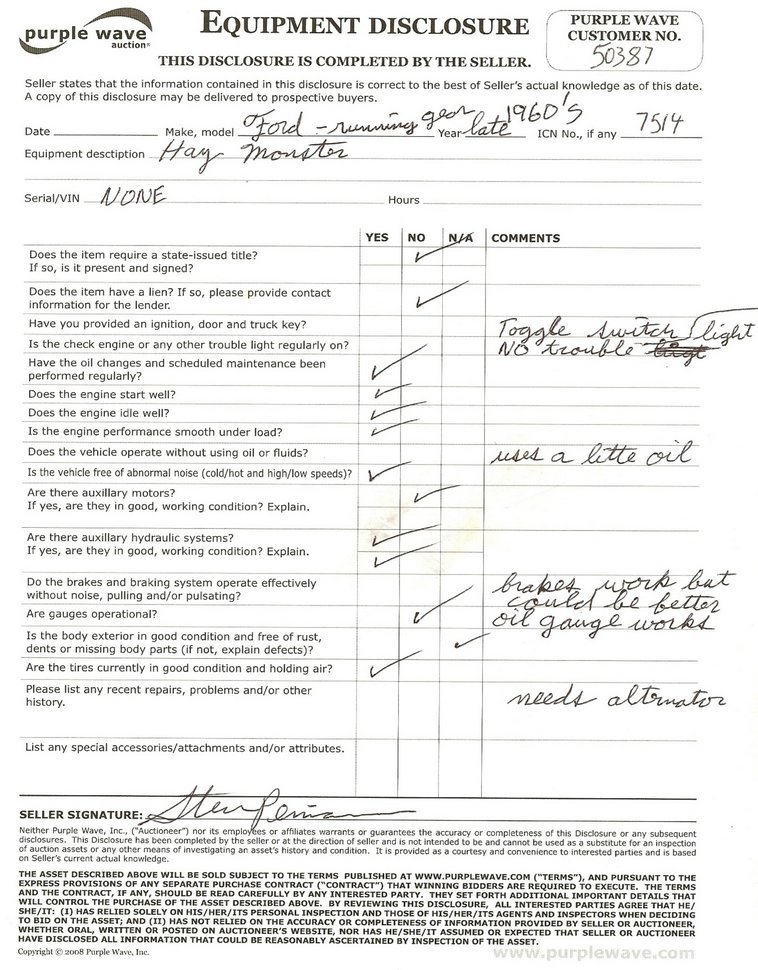 purple wave
auction®
EQUIPMENT DISCLOSURE
PURPLE WAVE
CUSTOMER NO.
50387
THIS DISCLOSURE IS COMPLETED BY THE SELLER.
Seller states that the information contained in this disclosure is correct to the best of Seller's actual knowledge as of this date.
A copy of this disclosure may be delivered to prospective buyers.
Date Make, model Ford - running gear Year late 1960's ICN No., if any 7514
Equipment desctiption Hay Monster
Serial/VIN NONE Hours
YES NO N/A COMMENTS
Does the item require a state-issued title?
If so, is it present and signed?
Does the item have a lien? If so, please provide contact
information for the lender.
Have you provided an ignition, door and truck key? Toggle switch
Is the check engine or any other trouble light regularly on? NO trouble light
Have the oil changes and scheduled maintenance been
performed regularly?
Does the engine start well?
Does the engine idle well?
Is the engine performance smooth under load?
Does the vehicle operate without using oil or fluids? uses a litte oil
Is the vehicle free of abnormal noise (cold/hot and high/low speeds)?
Are there auxillary motors?
If yes, are they in good, working condition? Explain.
Are there auxillary hydraulic systems?
If yes, are they in good, working condition? Explain.
Do the brakes and braking system operate effectively brakes work but
without noise, pulling and/or pulsating? could be better
Are gauges operational? oil gauge works
Is the body exterior in good condition and free of rust,
dents or missing body parts (if not, explain defects)?
Are the tires currently in good condition and holding air?
Please list any recent repairs, problems and/or other needs alternator
history.
List any special accessories/attachments and/or attributes.
SELLER SIGNATURE:
Neither Purple Wave, Inc., ("Auctioneer") nor its employees or affiliates warrants or guarantees the accuracy or completeness of this Disclosure or any subsequent
disclosures. This Disclosure has been completed by the seller or at the direction of seller and is not intended to be and cannot be used as a substitute for an inspection
of auction assets or any other means of investigating an asset's history and condition. It is provided as a courtesy and convenience to interested parties and is based
on Seller's current actual knowledge.
THE ASSET DESCRIBED ABOVE WILL BE SOLD SUBJECT TO THE TERMS PUBLISHED AT WWW.PURPLEWAVE.COM ("TERMS"), AND PURSUANT TO THE
EXPRESS PROVISIONS OF ANY SEPARATE PURCHASE CONTRACT ("CONTRACT") THAT WINNING BIDDERS ARE REQUIRED TO EXECUTE. THE TERMS
AND THE CONTRACT, IF ANY, SHOULD BE READ CAREFULLY BY ANY INTERESTED PARTY. THEY SET FORTH ADDITIONAL IMPORTANT DETAILS THAT
WILL CONTROL THE PURCHASE OF THE ASSET DESCRIBED ABOVE. BY REVIEWING THIS DISCLOSURE, ALL INTERESTED PARTIES AGREE THAT HE/
SHE/IT: (I) HAS RELIED SOLELY ON HIS/HER/ITS PERSONAL INSPECTION AND THOSE OF HIS/HER/ITS AGENTS AND INSPECTORS WHEN DECIDING
TO BID ON THE ASSET; AND (II) HAS NOT RELIED ON THE ACCURACY OR COMPLETENESS OF INFORMATION PROVIDED BY SELLER OR AUCTIONEER,
WHETHER ORAL, WRITTEN OR POSTED ON AUCTIONEER'S WEBSITE, NOR HAS HE/SHE/IT ASSUMED OR EXPECTED THAT SELLER OR AUCTIONEER
HAVE DISCLOSED ALL INFORMATION THAT COULD BE REASONABLY ASCERTAINED BY INSPECTION OF THE ASSET.
Copyright © 2008 Purple Wave, Inc.
www.purplewave.com